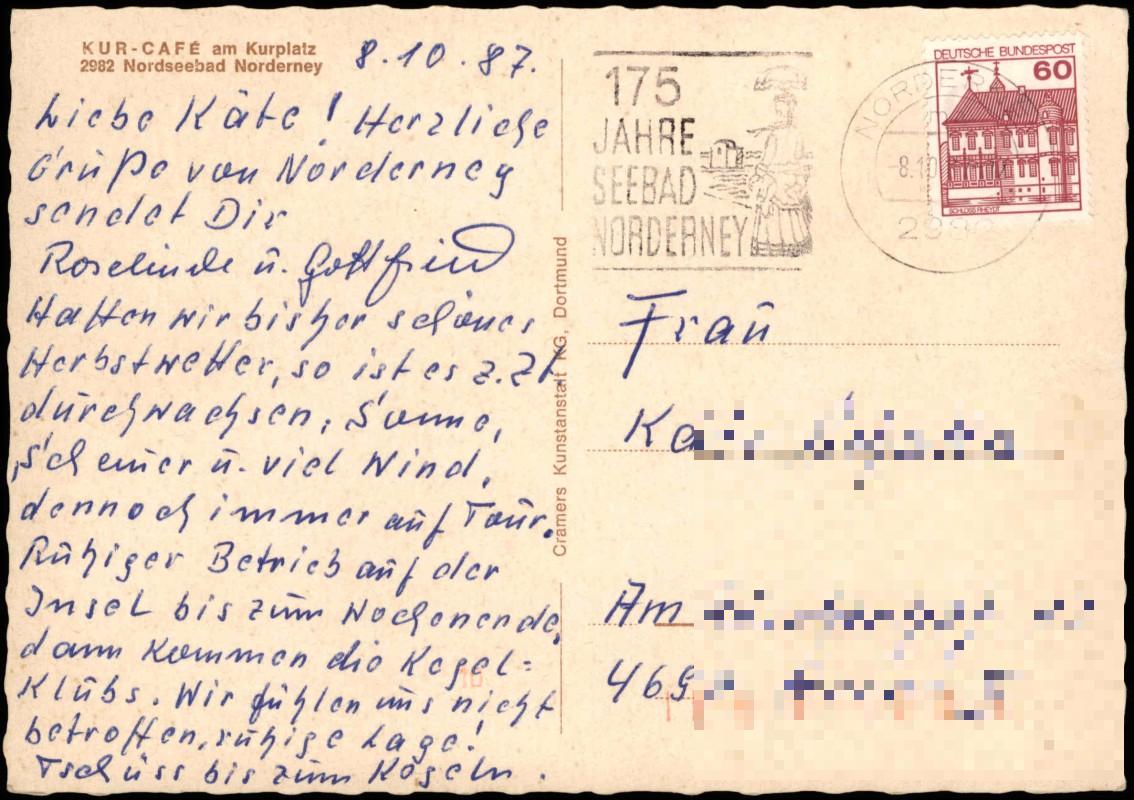 KUR-CAFÉ am Kurplatz
2982 Nordseebad Norderney
8.10.87.
Liebe Käte! Herzliche
Grüße von Norderney
sendet Dir
Roselinde u. Gottfried
Hatten wir bisher schönes
Herbstwetter, so ist es z.Zt
durchwachsen, Sonne,
Schauer u. viel Wind,
dennoch immer auf Tour.
Ruhiger Betrieb auf der
Insel bis zum Wochenende,
dann kommen die Kegel=
Klubs. Wir fühlen uns nicht
betroffen, ruhige Lage!
Tschüss bis zum Kegeln.
Cramers Kunstanstalt KG, Dortmund
175
JAHRE
SEEBAD
NORDERNEY
DEUTSCHE BUNDESPOST
60
SCHLOSS RHEYDT
Frau
Am